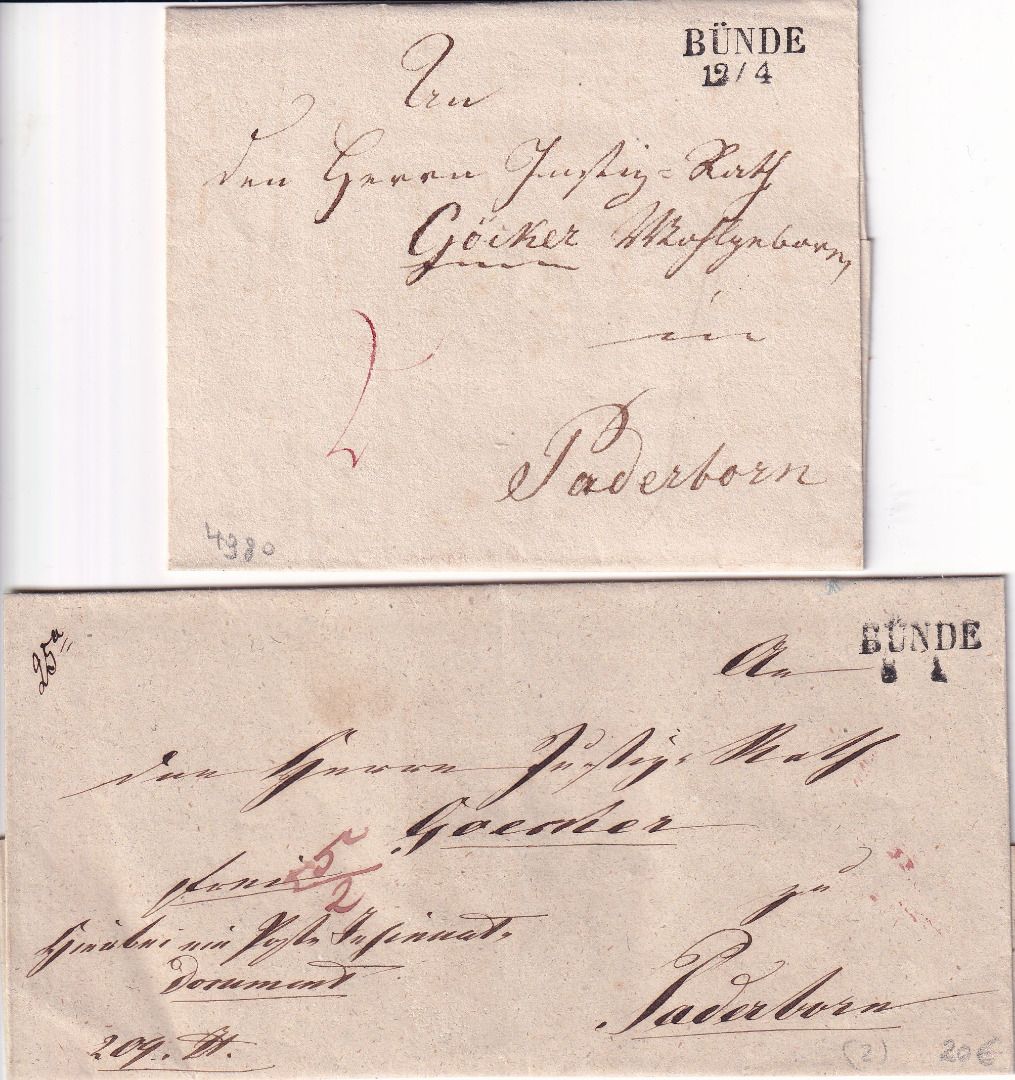 BÜNDE
12/4
An
den Herrn Justiz-Rath
Göcker Wohlgeboren,
in
2
Paderborn
4980
25a
BÜNDE
8 1
An
den Herrn Justiz-Rath
Goecker
frei
5
2
zu
Hierbei ein Post-Insinuat-
document
Paderborn
209.
(2) 20€